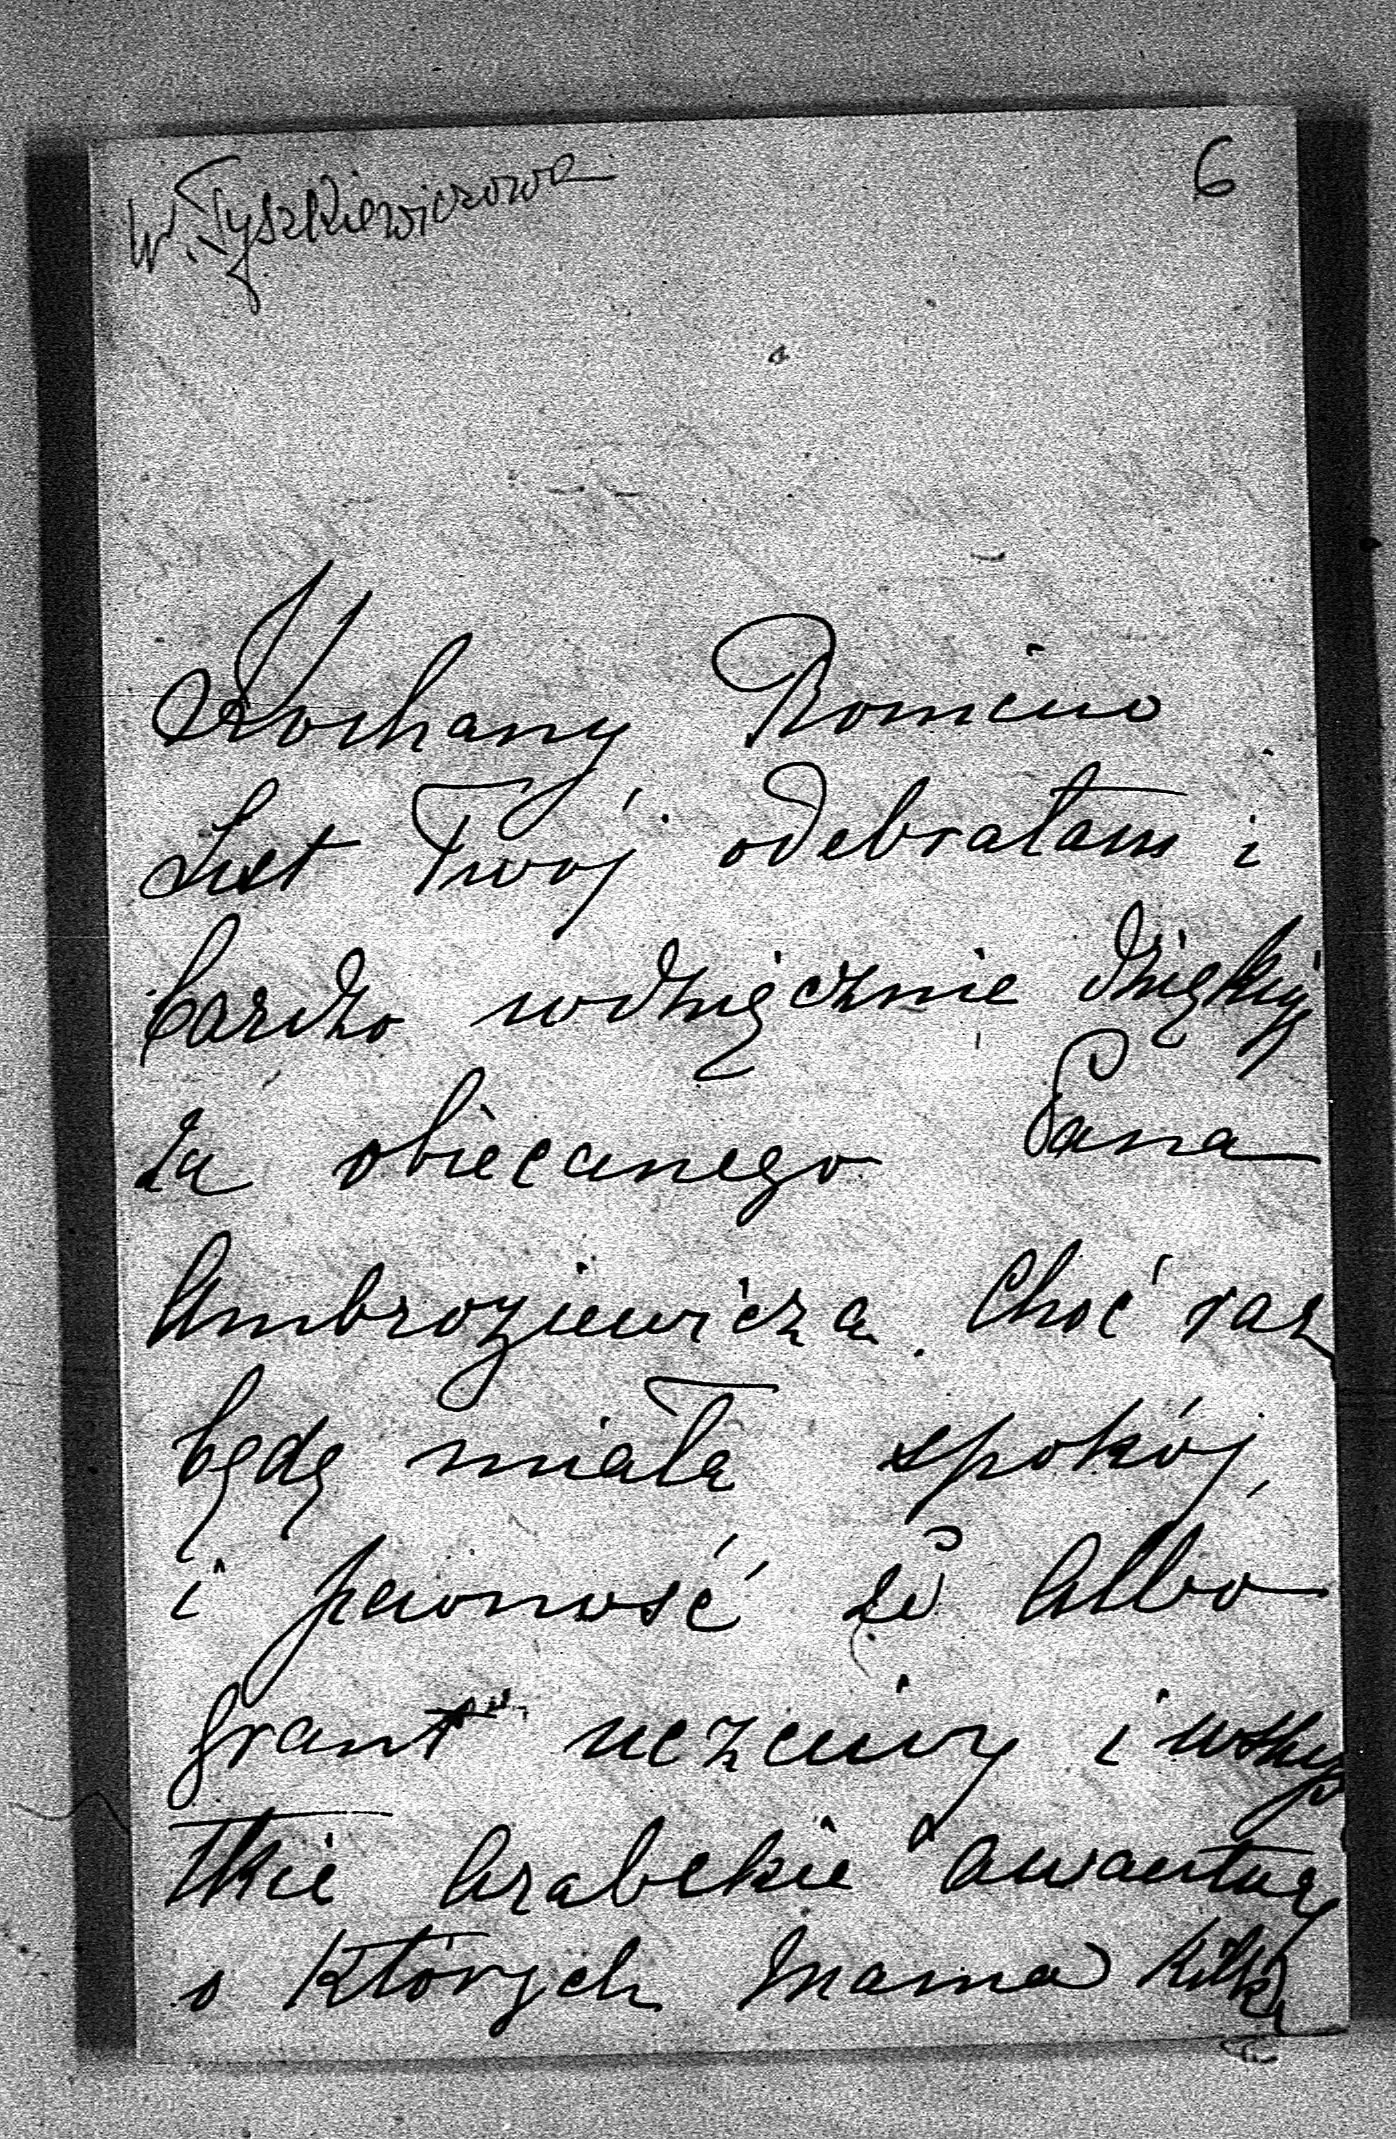 W. Tyszkiewiczowa
6
Kochany Romciuo
List Twój odebrałam i
bardzo wdzięcznie dziękuję
za obiecanego Pana
Ambroziewicza. Choć raz
będę miała spokój
i pewność że albo
grant uczciwy i wszys
tkie hrabckie awantury
o których Mama kilka